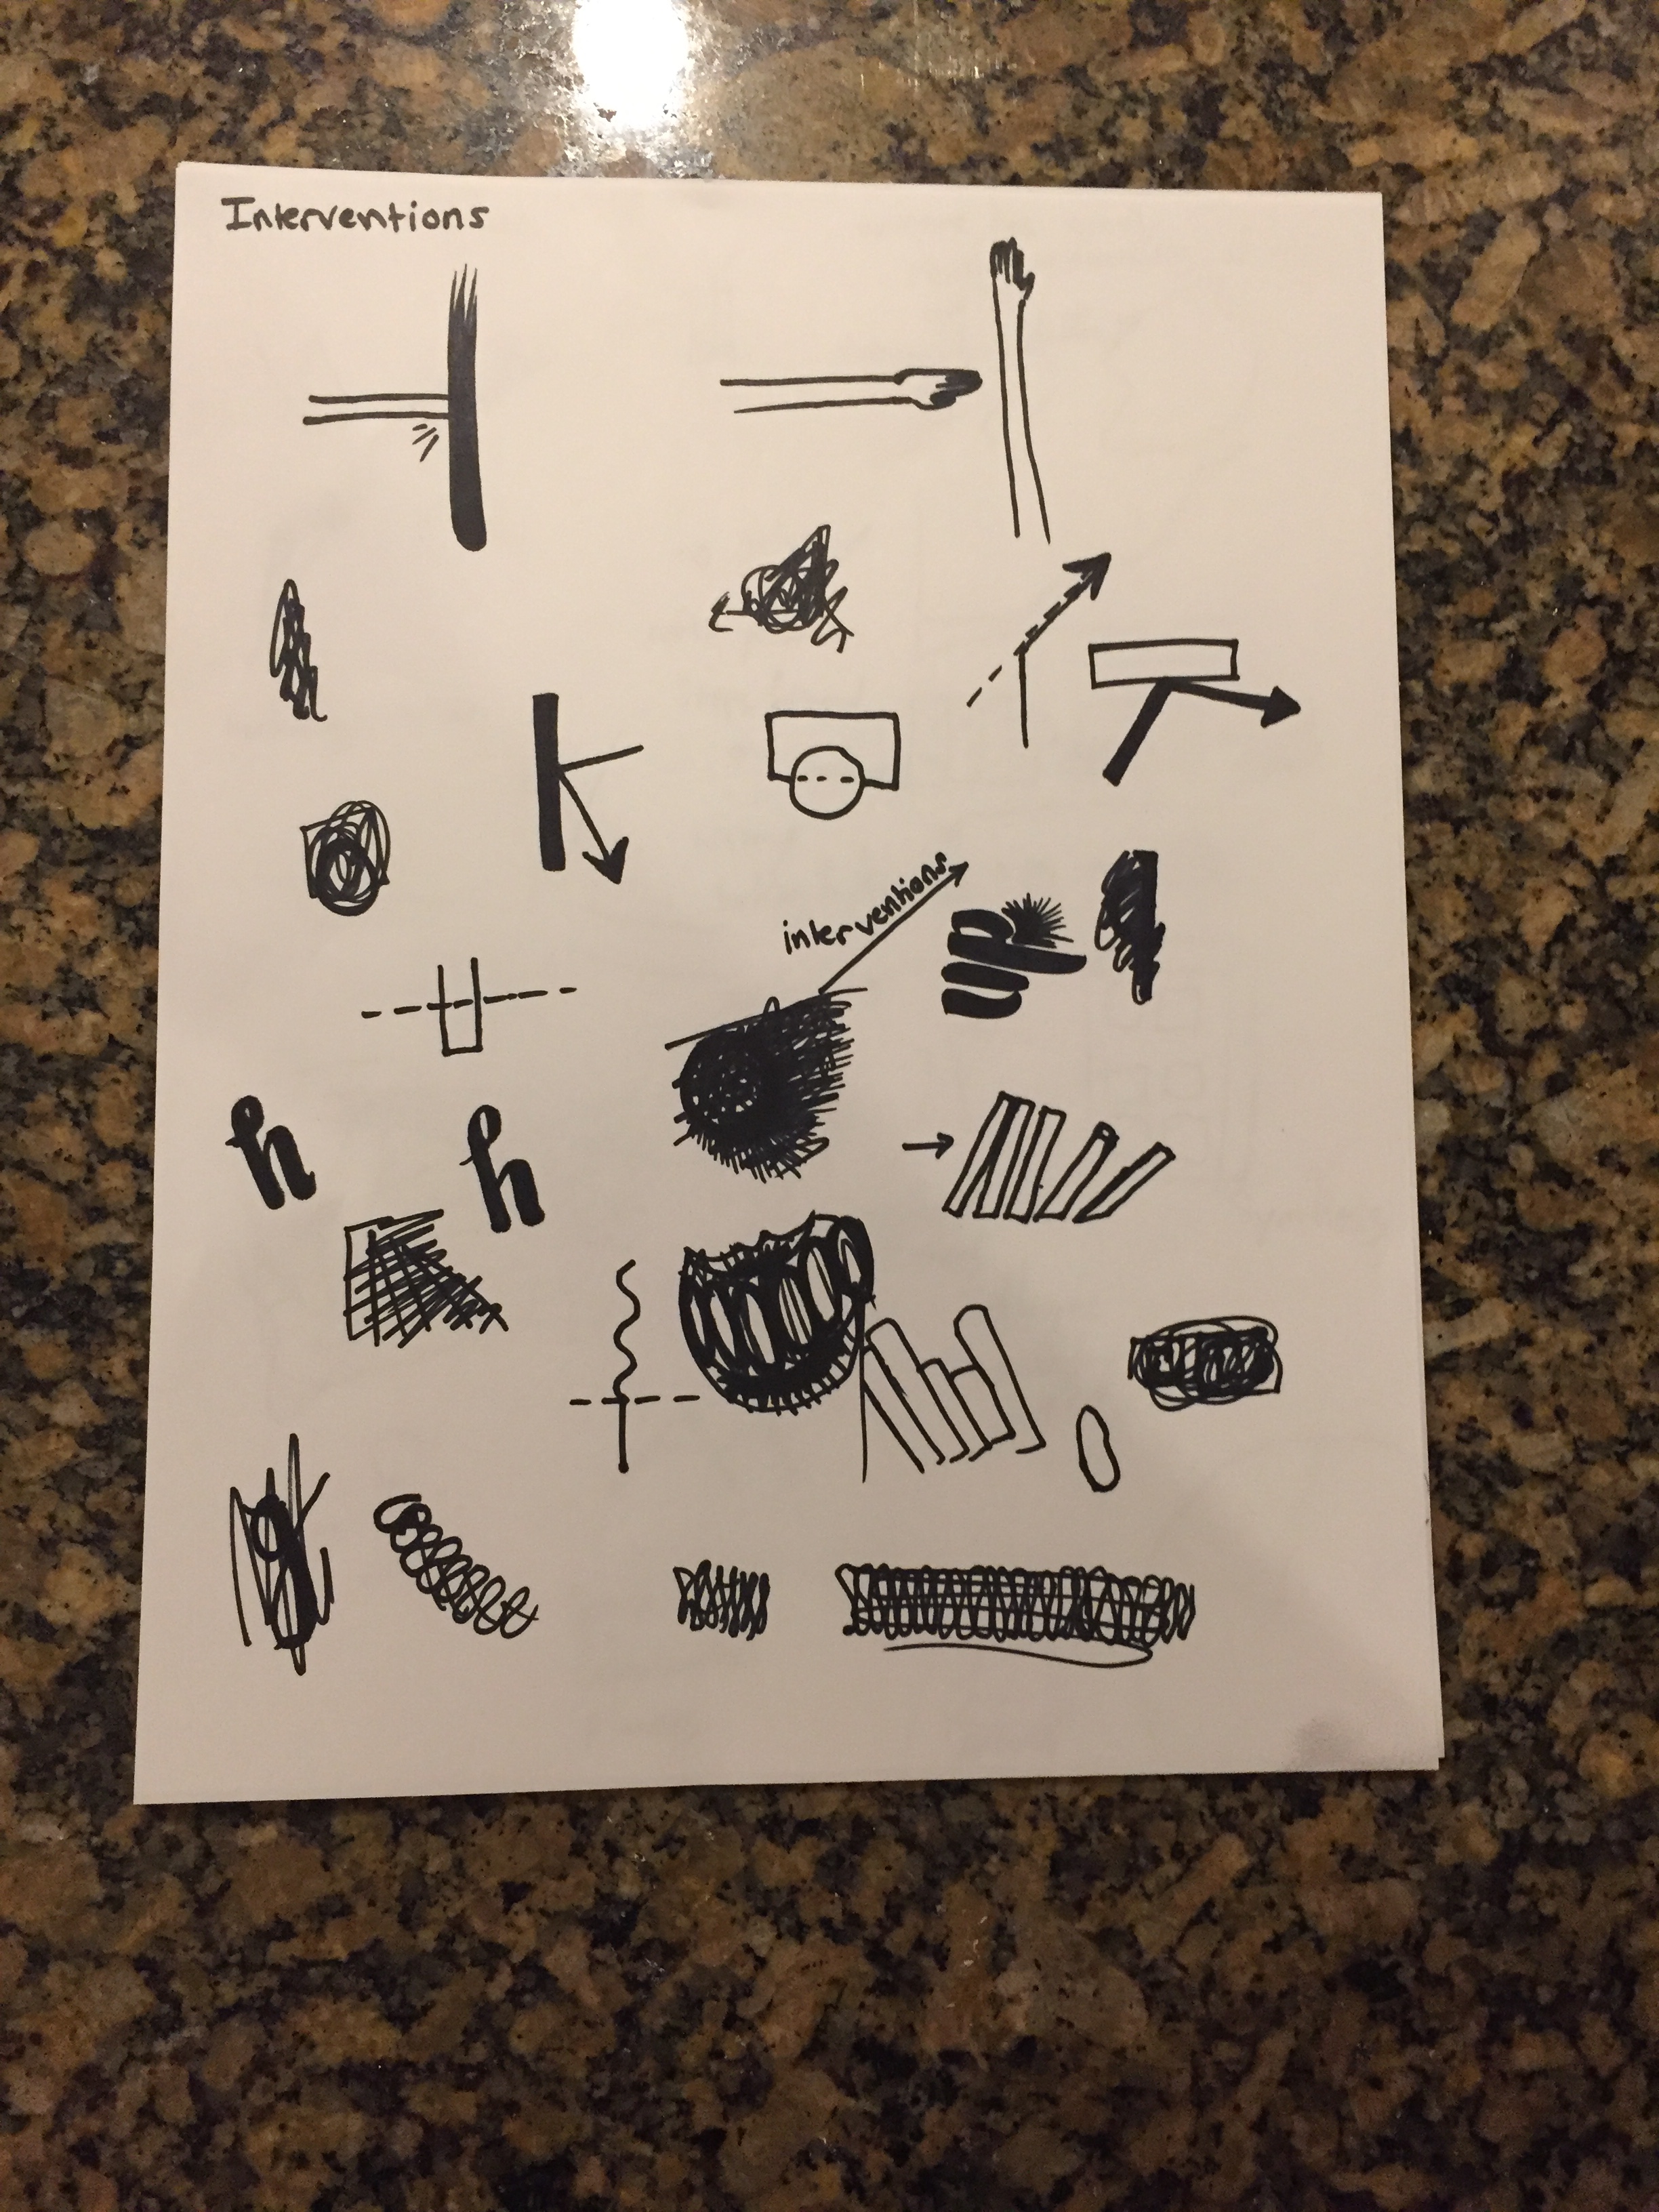 Interventions
interventions
h h